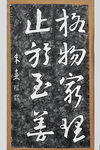 格物窮理
止於至善
朱熹